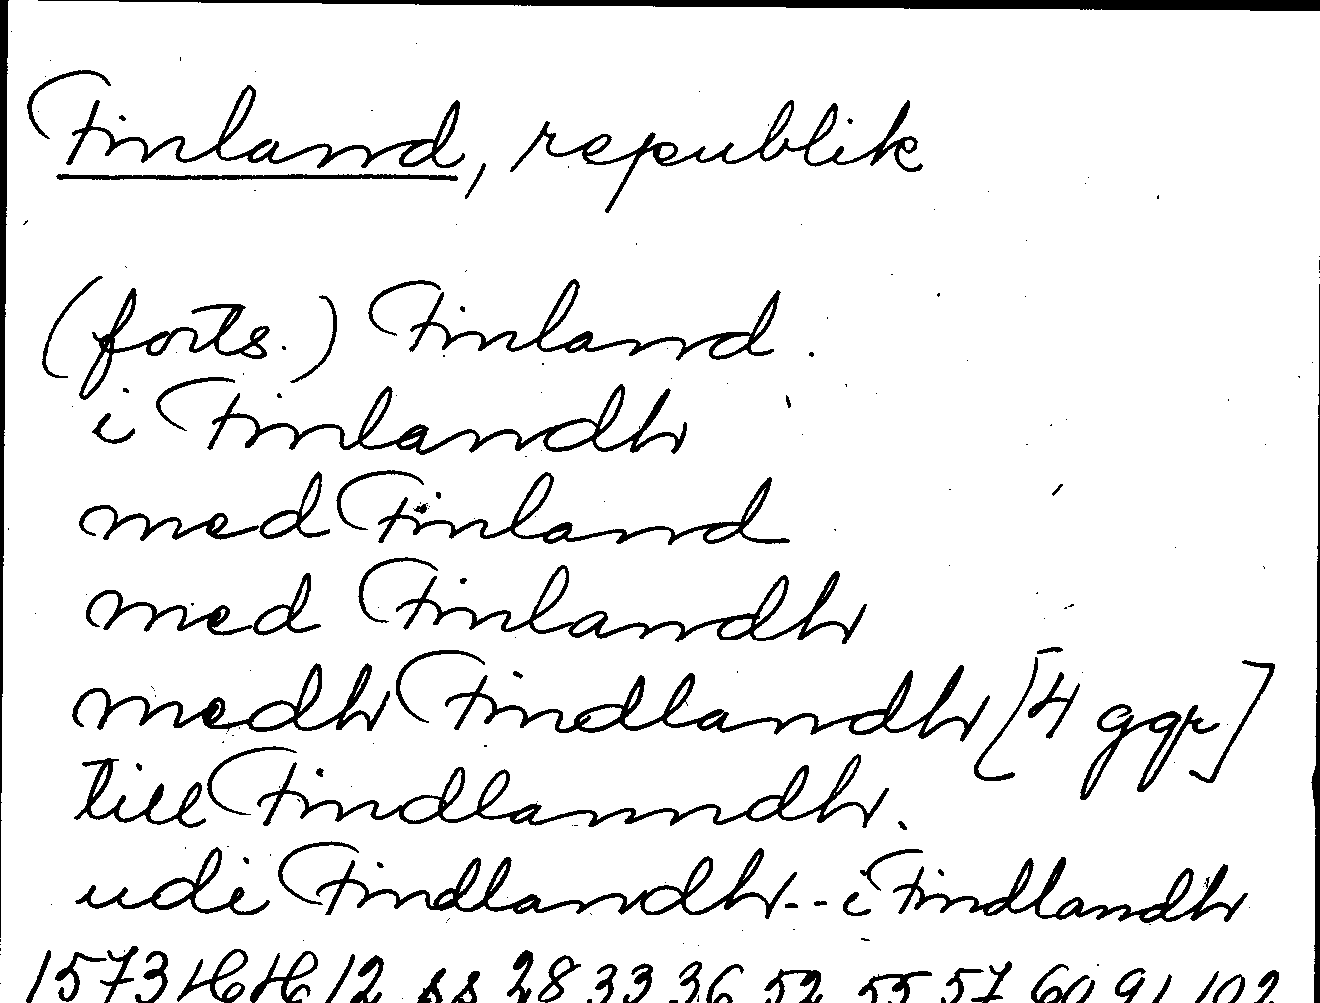 Finland, republik
(forts.) Finland.
i Finlandh
med Finland
med Finlandh
medh Findlandh [4 ggr]
till Findlanndh.
udi Findlandh -- i Findlandh
1573 HH 12 ss 28 33 36 52 55 57 60 91 102